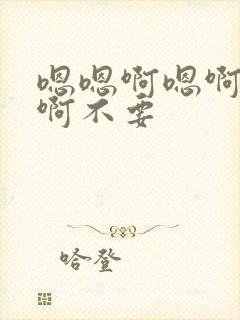 嗯嗯啊嗯啊
啊不要
哈登